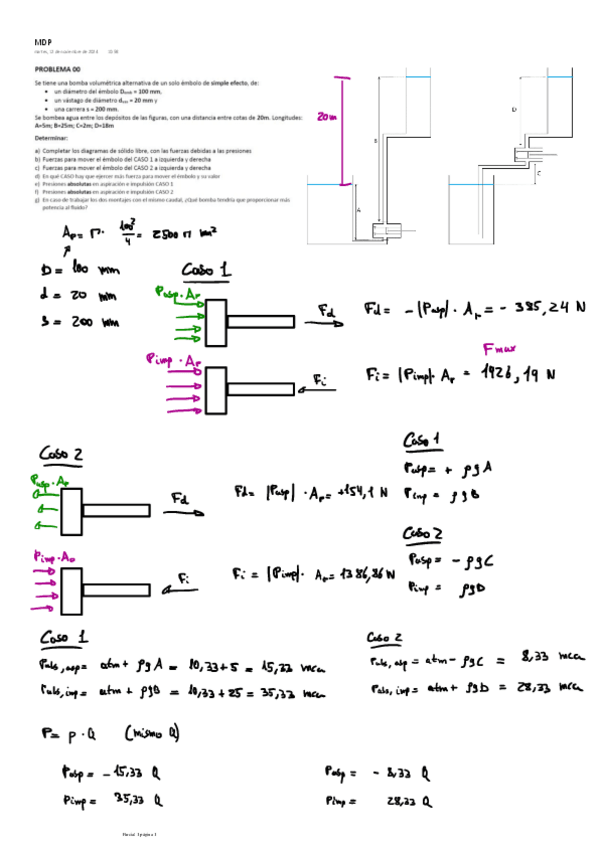 MDP
PROBLEMA 00
Se tiene una bomba volumétrica alternativa de un solo émbolo de simple efecto, de:
• un diámetro del émbolo = 100 mm,
• un vástago de diámetro = 20 mm y
• una carrera s = 200 mm.
Se bombea agua entre los depósitos de las figuras, con una distancia entre cotas de 20m. Longitudes:
A=5m; B=25m; C=2m; D=18m
Determinar:
a) Completar los diagramas de sólido libre, con las fuerzas debidas a las presiones
b) Fuerzas para mover el émbolo del CASO 1 a izquierda y derecha
c) Fuerzas para mover el émbolo del CASO 2 a izquierda y derecha
d) En qué CASO hay que ejercer más fuerza para mover el émbolo y su valor
e) Presiones absolutas en aspiración e impulsión CASO 1
f) Presiones absolutas en aspiración e impulsión CASO 2
g) En caso de trabajar los dos montajes con el mismo caudal, ¿Qué bomba tendría que proporcionar más
potencia al fluido?
20m
A
D
C
Ap = π · 100²/4 = 2500 π mm²
D = 100 mm
d = 20 mm
s = 200 mm
Caso 1
Pasp · Ap
Fd
Fd = - |Pasp| · Ap = - 385,24 N
Pimp · Ap
Fi
Fmax
Fi = |Pimp| · Ap = 1926,19 N
Caso 2
Pasp · Ap
Fd
Fd = |Pasp| · Ap = +154,1 N
Pimp · Ap
Fi
Fi = |Pimp| · Ap = 1386,86 N
Caso 1
Pasp = + ρgA
Pimp = ρgB
Caso 2
Pasp = - ρgC
Pimp = ρgD
Caso 1
Pabs, asp = atm + ρgA = 10,33+5 = 15,33 mca
Pabs, imp = atm + ρgB = 10,33 + 25 = 35,33 mca
Caso 2
Pabs, asp = atm - ρgC = 8,33 mca
Pabs, imp = atm + ρgD = 28,33 mca
P = p · Q (mismo Q)
Pasp = - 15,33 Q
Pimp = 35,33 Q
Pasp = - 8,33 Q
Pimp = 28,33 Q